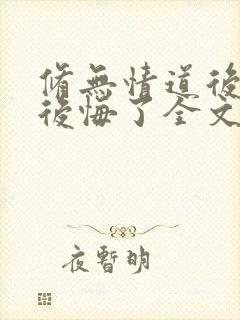 脩無情道後
後悔了全文
夜暫明